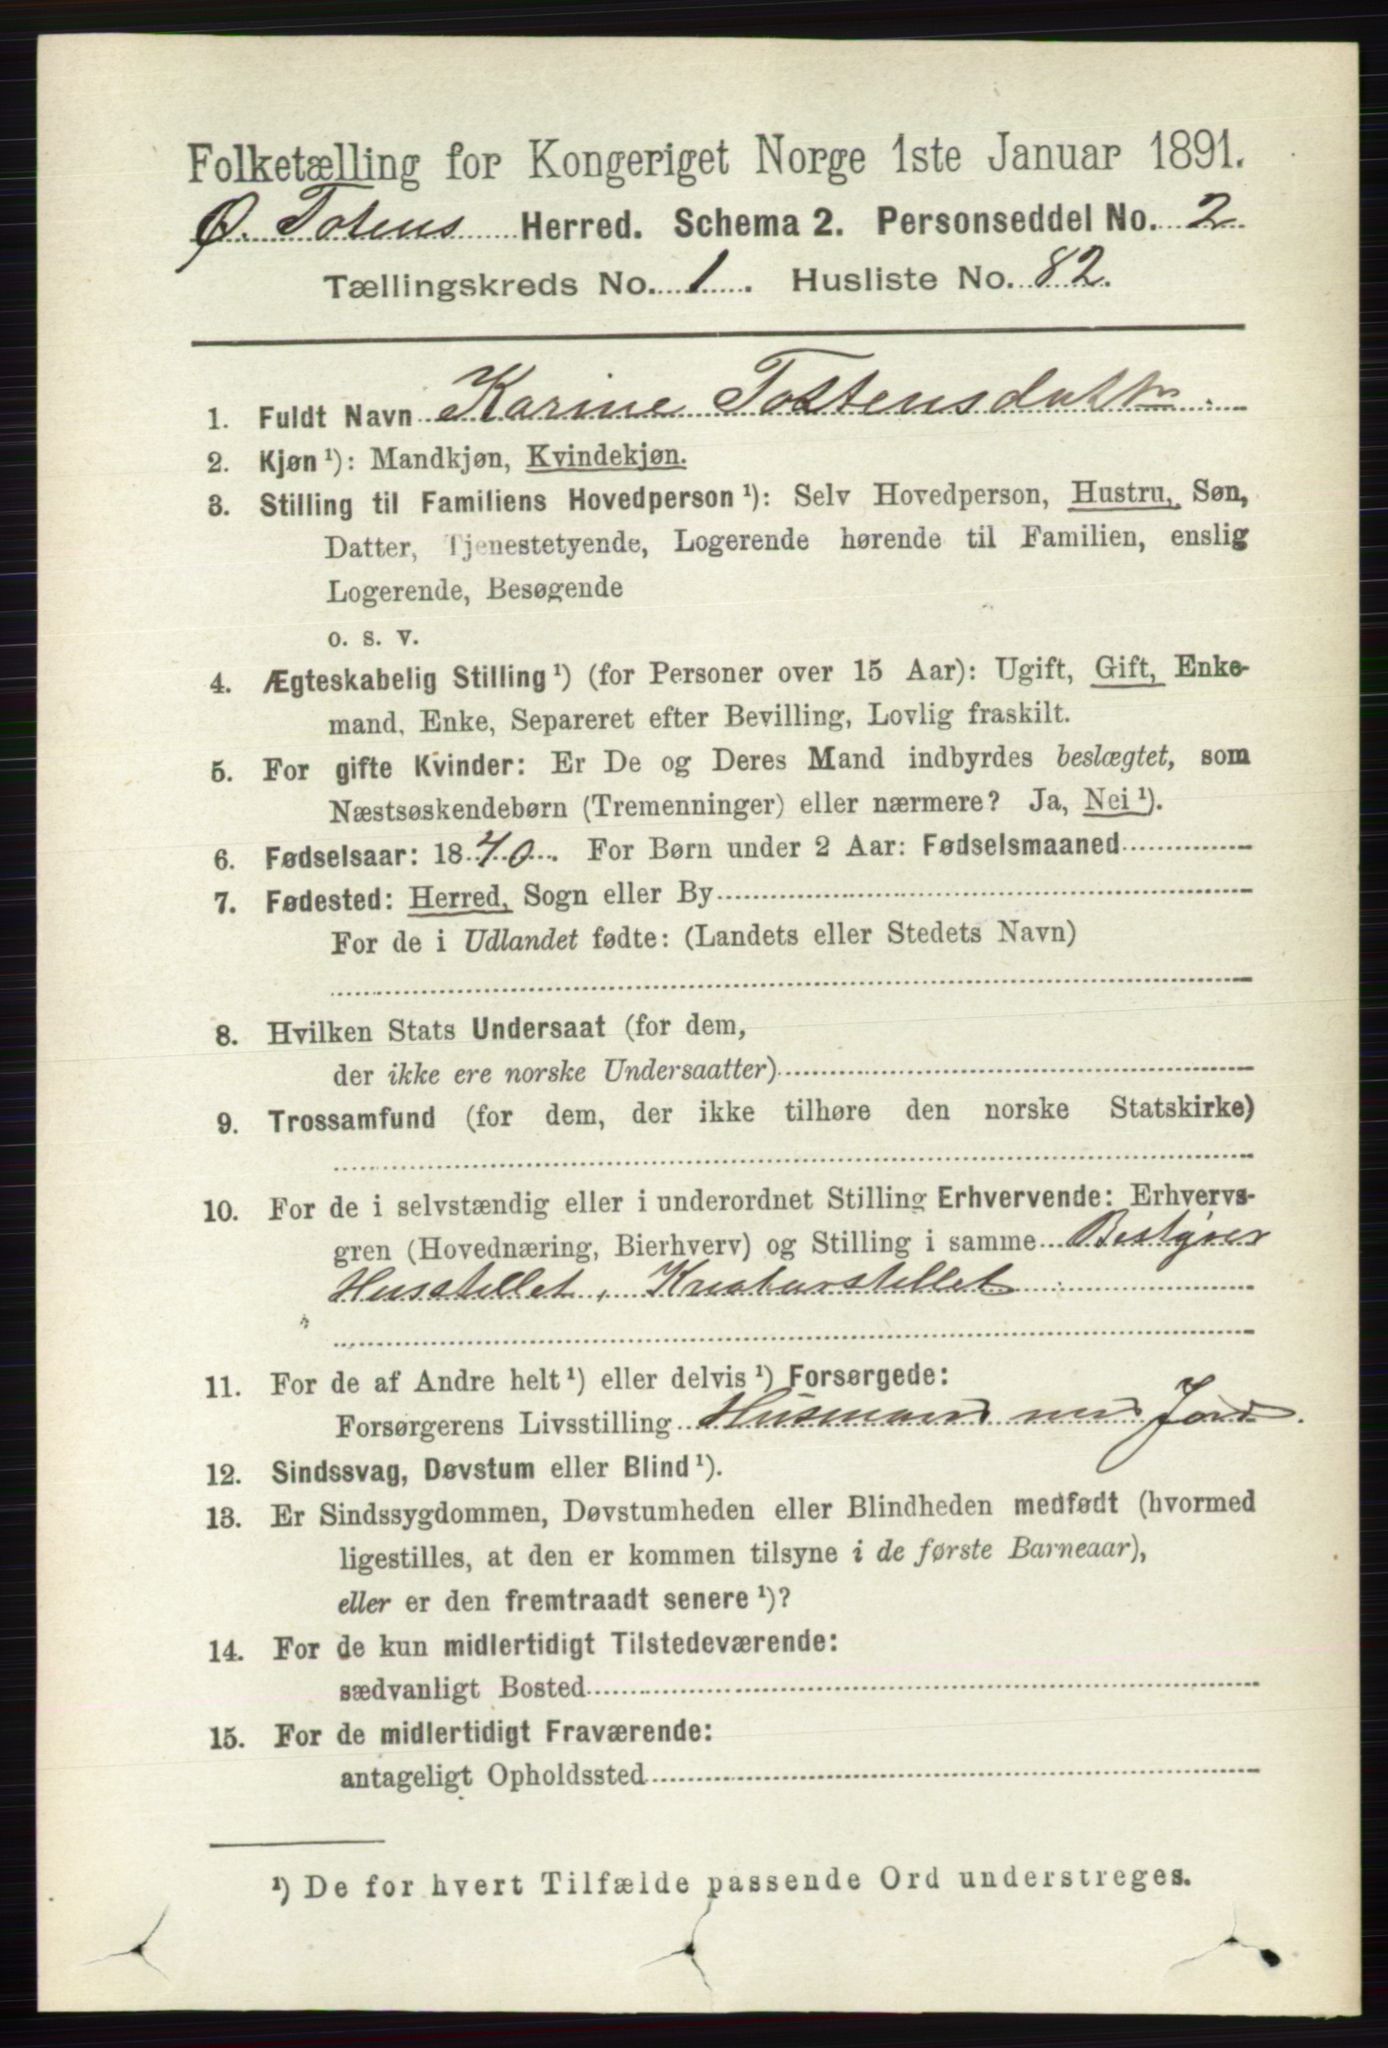 Folketælling for Kongeriget Norge 1ste Januar 1891.
Ø. Totens Herred. Schema 2. Personseddel No. 2.
Tællingskreds No. 1. Husliste No. 82.
1. Fuldt Navn Karine Tostensdatter
2. Kjøn ¹): Mandkjøn, Kvindekjøn.
3. Stilling til Familiens Hovedperson ¹): Selv Hovedperson, Hustru, Søn,
Datter, Tjenestetyende, Logerende hørende til Familien, enslig
Logerende, Besøgende
o. s. v.
4. Ægteskabelig Stilling ¹) (for Personer over 15 Aar): Ugift, Gift, Enke-
mand, Enke, Separeret efter Bevilling, Lovlig fraskilt.
5. For gifte Kvinder: Er De og Deres Mand indbyrdes beslægtet, som
Næstsøskendebørn (Tremenninger) eller nærmere? Ja, Nei ¹).
6. Fødselsaar: 1840. For Børn under 2 Aar: Fødselsmaaned
7. Fødested: Herred, Sogn eller By
For de i Udlandet fødte: (Landets eller Stedets Navn)
8. Hvilken Stats Undersaat (for dem,
der ikke ere norske Undersaatter)
9. Trossamfund (for dem, der ikke tilhøre den norske Statskirke)
10. For de i selvstændig eller i underordnet Stilling Erhvervende: Erhvervs-
gren (Hovednæring, Bierhverv) og Stilling i samme Bestyrer
Husstellet, Kreaturstellet
11. For de af Andre helt ¹) eller delvis ¹) Forsørgede:
Forsørgerens Livsstilling Husmand med Jord.
12. Sindssvag, Døvstum eller Blind ¹).
13. Er Sindssygdommen, Døvstumheden eller Blindheden medfødt (hvormed
ligestilles, at den er kommen tilsyne i de første Barneaar),
eller er den fremtraadt senere ¹)?
14. For de kun midlertidigt Tilstedeværende:
sædvanligt Bosted
15. For de midlertidigt Fraværende:
antageligt Opholdssted
¹) De for hvert Tilfælde passende Ord understreges.